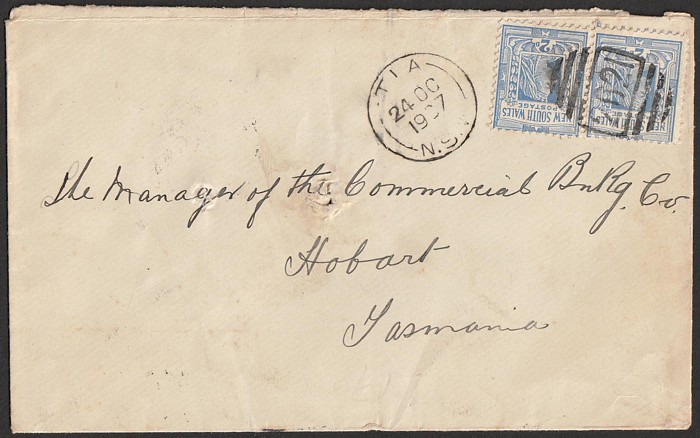 TIA
24 OC
1907
N.S.W
2D
NEW SOUTH WALES
POSTAGE
2D
WALES
POSTAGE
The Manager of the Commercial Bnkg. Co.
Hobart
Tasmania